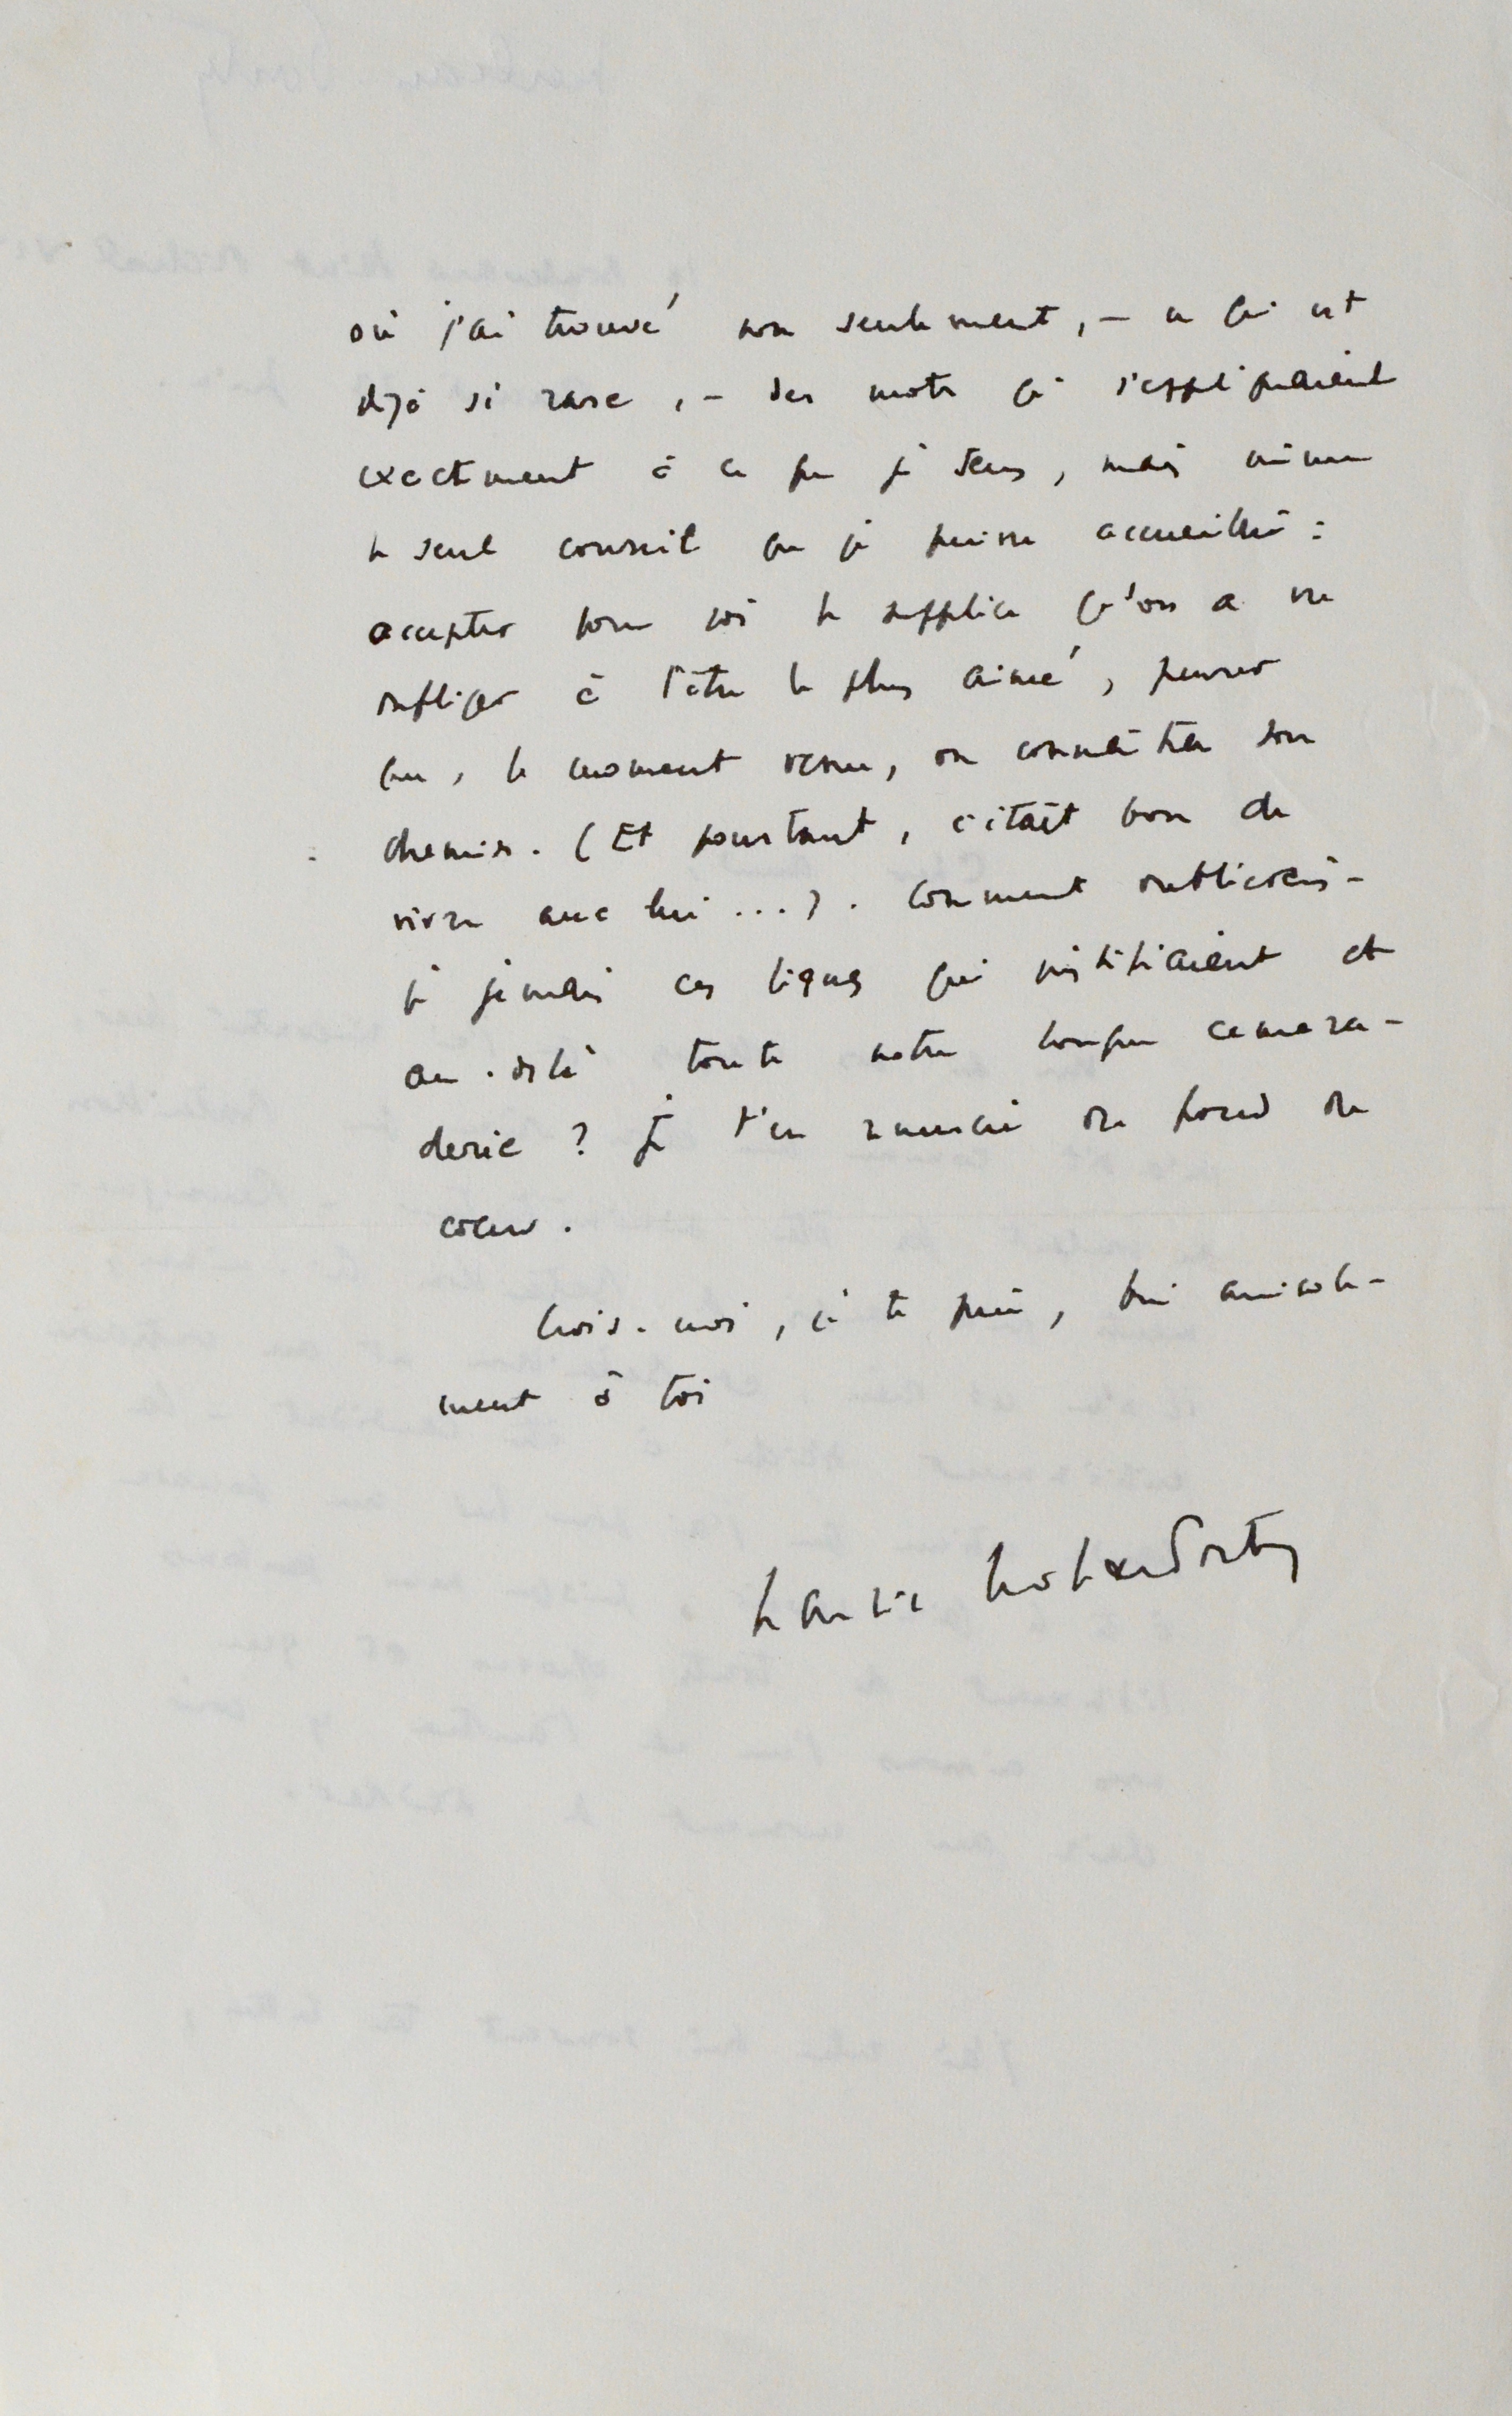 où j'ai trouvé non seulement, – ce qui est
déjà si rare, – des mots qui s'appliquaient
exactement à ce que je sens, mais même
le seul conseil que je puisse accueillir :
accepter pour soi le supplice qu'on a vu
infliger à l'être le plus aimé, penser
que, le moment venu, on connaîtra son
chemin. (Et pourtant, c'était bon de
vivre avec lui ...). Comment oublierais-
je jamais ces lignes qui justifiaient et
au-delà toute notre longue camara-
derie ? Je t'en remercie du fond du
cœur.
Crois-moi, je te prie, bien amicale-
ment à toi